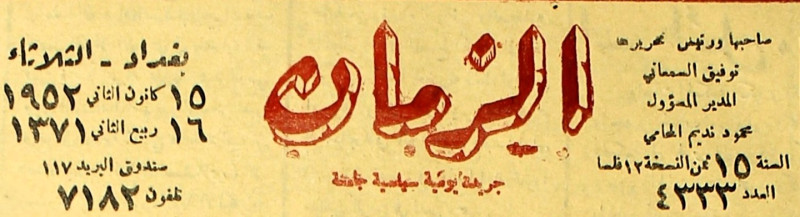 صاحبها ورئيس تحريرها
توفيق السمعاني
المدير المسؤول
محمود نديم المحامي
السنة ١٥ ثمن النسخة ١٢ فلسا
العدد ٤٣٣٣
الزمان
جريدة يومية سياسية جامعة
بغداد - الثلاثاء
١٥ كانون الثاني ١٩٥٢
١٦ ربيع الثاني ١٣٧١
صندوق البريد ١١٧
تلفون ٧١٨٢